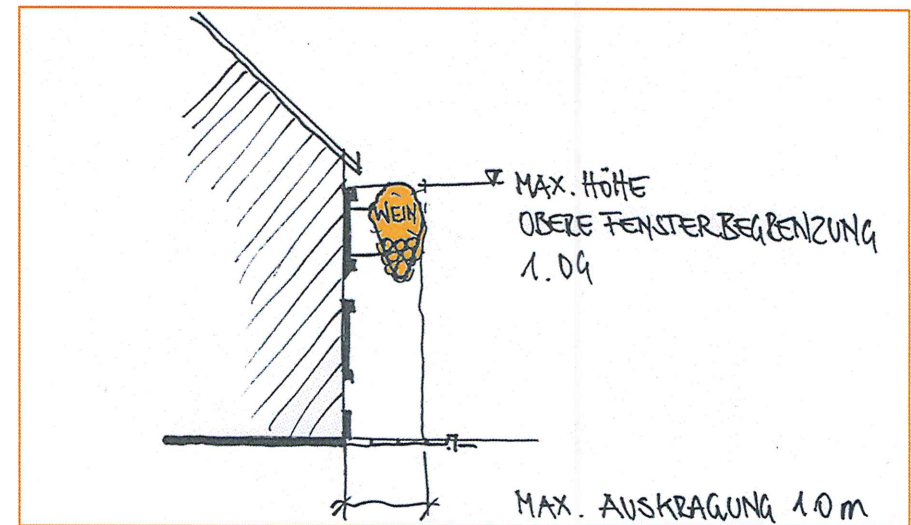 WEIN
MAX. HÖHE
OBERE FENSTERBEGRENZUNG
1. OG
MAX. AUSKRAGUNG 1.0 m